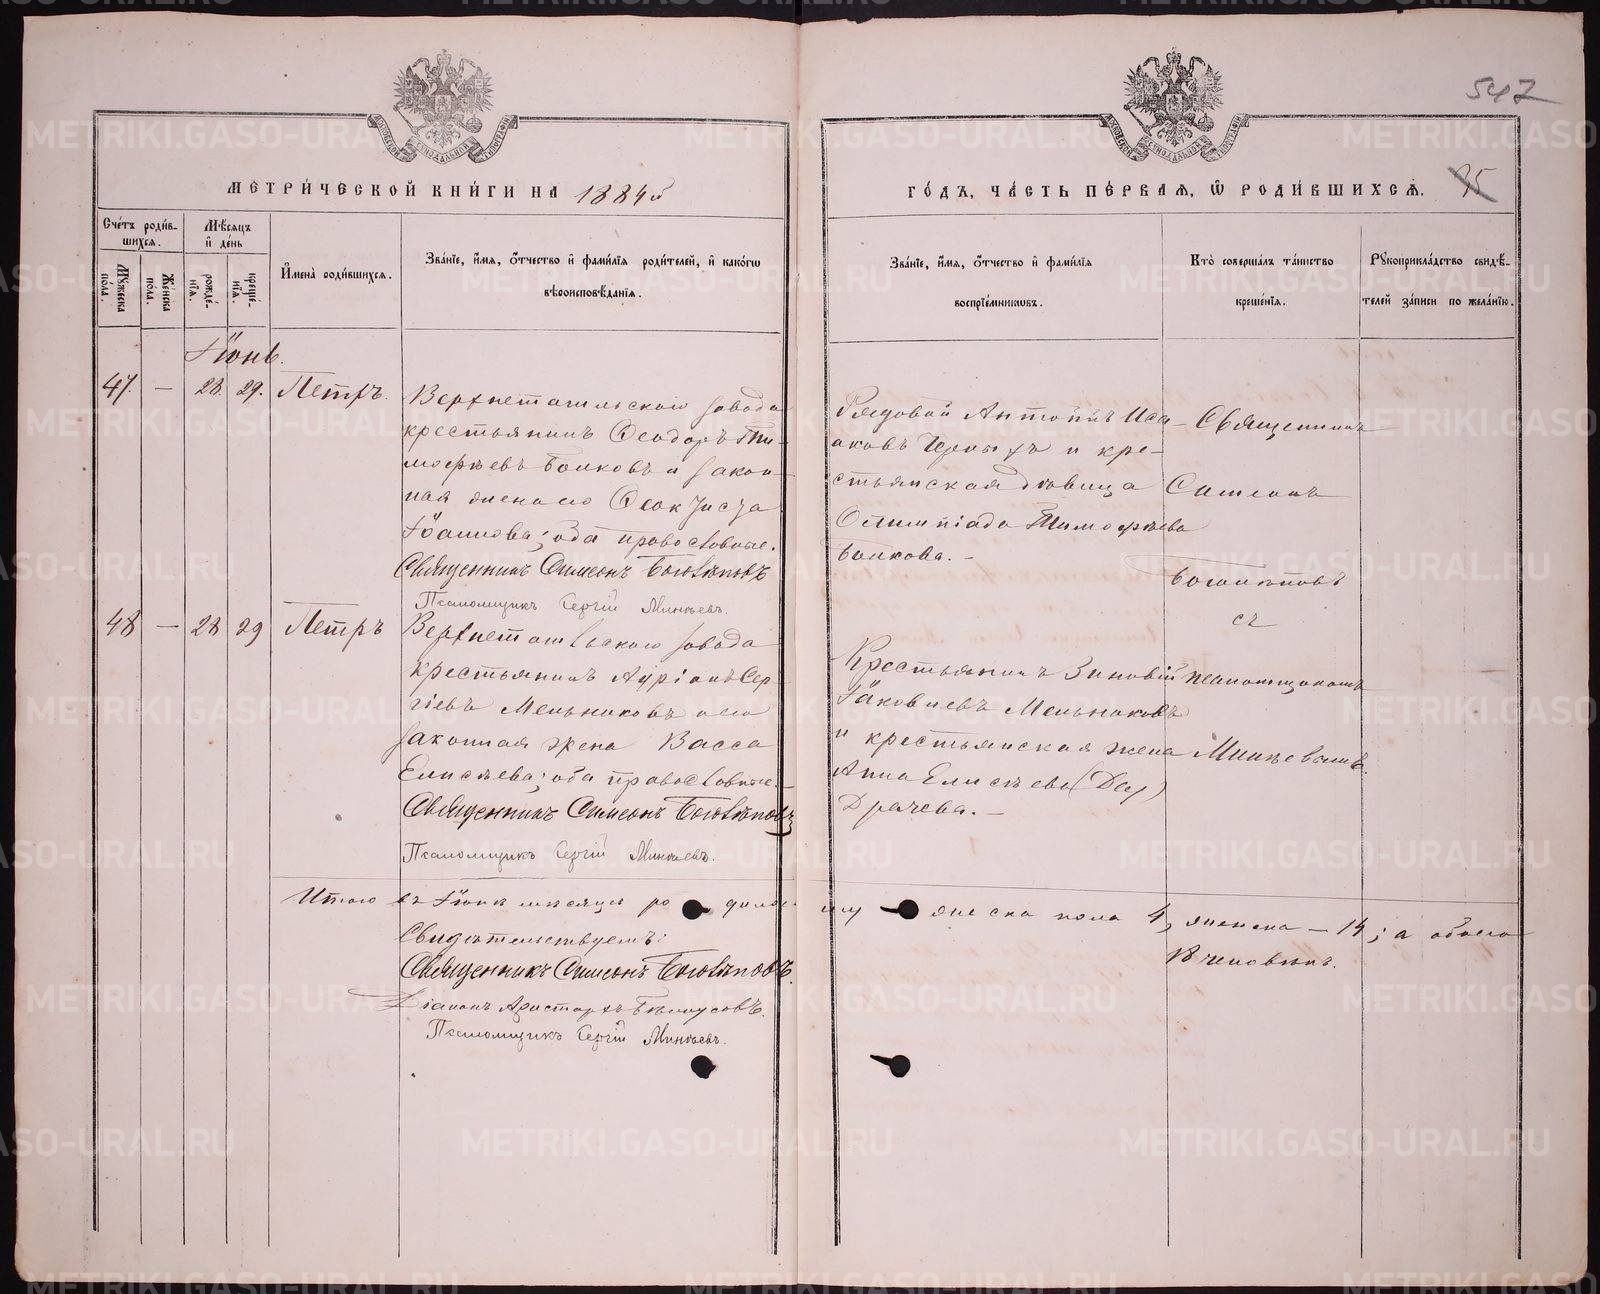 547
МЕТРИ́ЧЕСКОЙ КНИ́ГИ НА 1884й
ГО́ДЪ, ЧА́СТЬ ПЕ́РВАЯ, Ѿ РОДИ́ВШИХСЯ.
75
Сче́тъ роди́в-
шихся.
Мѣ́сяцъ
и҆ де́нь
Му́жеска
по́ла.
Же́нска
по́ла.
рожде́-
нїѧ.
креще́-
нїѧ.
И҆мена̀ роди́вшихся.
Зва́нїе, и҆́мѧ, ѻ҆́тчество и҆ фами́лїѧ роди́телей, и҆ како́гѡ
вѣроисповѣ́данїѧ.
Зва́нїе, и҆́мѧ, ѻ҆́тчество и҆ фами́лїѧ
воспрїе́мникѡвъ.
Кто̀ соверша́лъ та́инство
креще́нїѧ.
Рꙋкоприкла́дство свидѣ́-
телей за́писи по жела́нїю.
Іюнь.
47. — 28 29. Петръ.
Верхнетагильскаго завода
крестьянинъ Ѳеодоръ Тим-
мофѣевъ Волковъ и закон-
ная жена его Ѳеоктиста
Іоаннова; оба православные.
Священникъ Симеонъ Боголѣповъ
Псаломщикъ Сергій Минѣевъ.
Рядовой Антонинъ Иса-
аковъ Черныхъ и кре-
стьянская дѣвица
Олимпіада Тимофѣева
Волкова. —
Священникъ
Симеонъ
Боголѣповъ
съ
псаломщикомъ
Минѣевымъ.
48 — 28 29 Петръ
Верхнетагильскаго завода
крестьянинъ Адріанъ Сер-
гіевъ Мельниковъ и его
законная жена Васса
Елисѣева; оба православные.
Священникъ Симеонъ Боголѣповъ
Псаломщикъ Сергій Минѣевъ.
Крестьянинъ Зиновій
Іаковлевъ Мельниковъ
и крестьянская жена
Анна Елисѣева
Драчева. —
Итого въ Іюнѣ мѣсяцѣ родилось мужеска пола 4, женска — 14; а обоего
18 человѣкъ.
Свидѣтельствуемъ:
Священникъ Симеонъ Боголѣповъ.
Діаконъ Аристархъ Бѣлоусовъ.
Псаломщикъ Сергій Минѣевъ.
METRIKI.GASO-URAL.RU